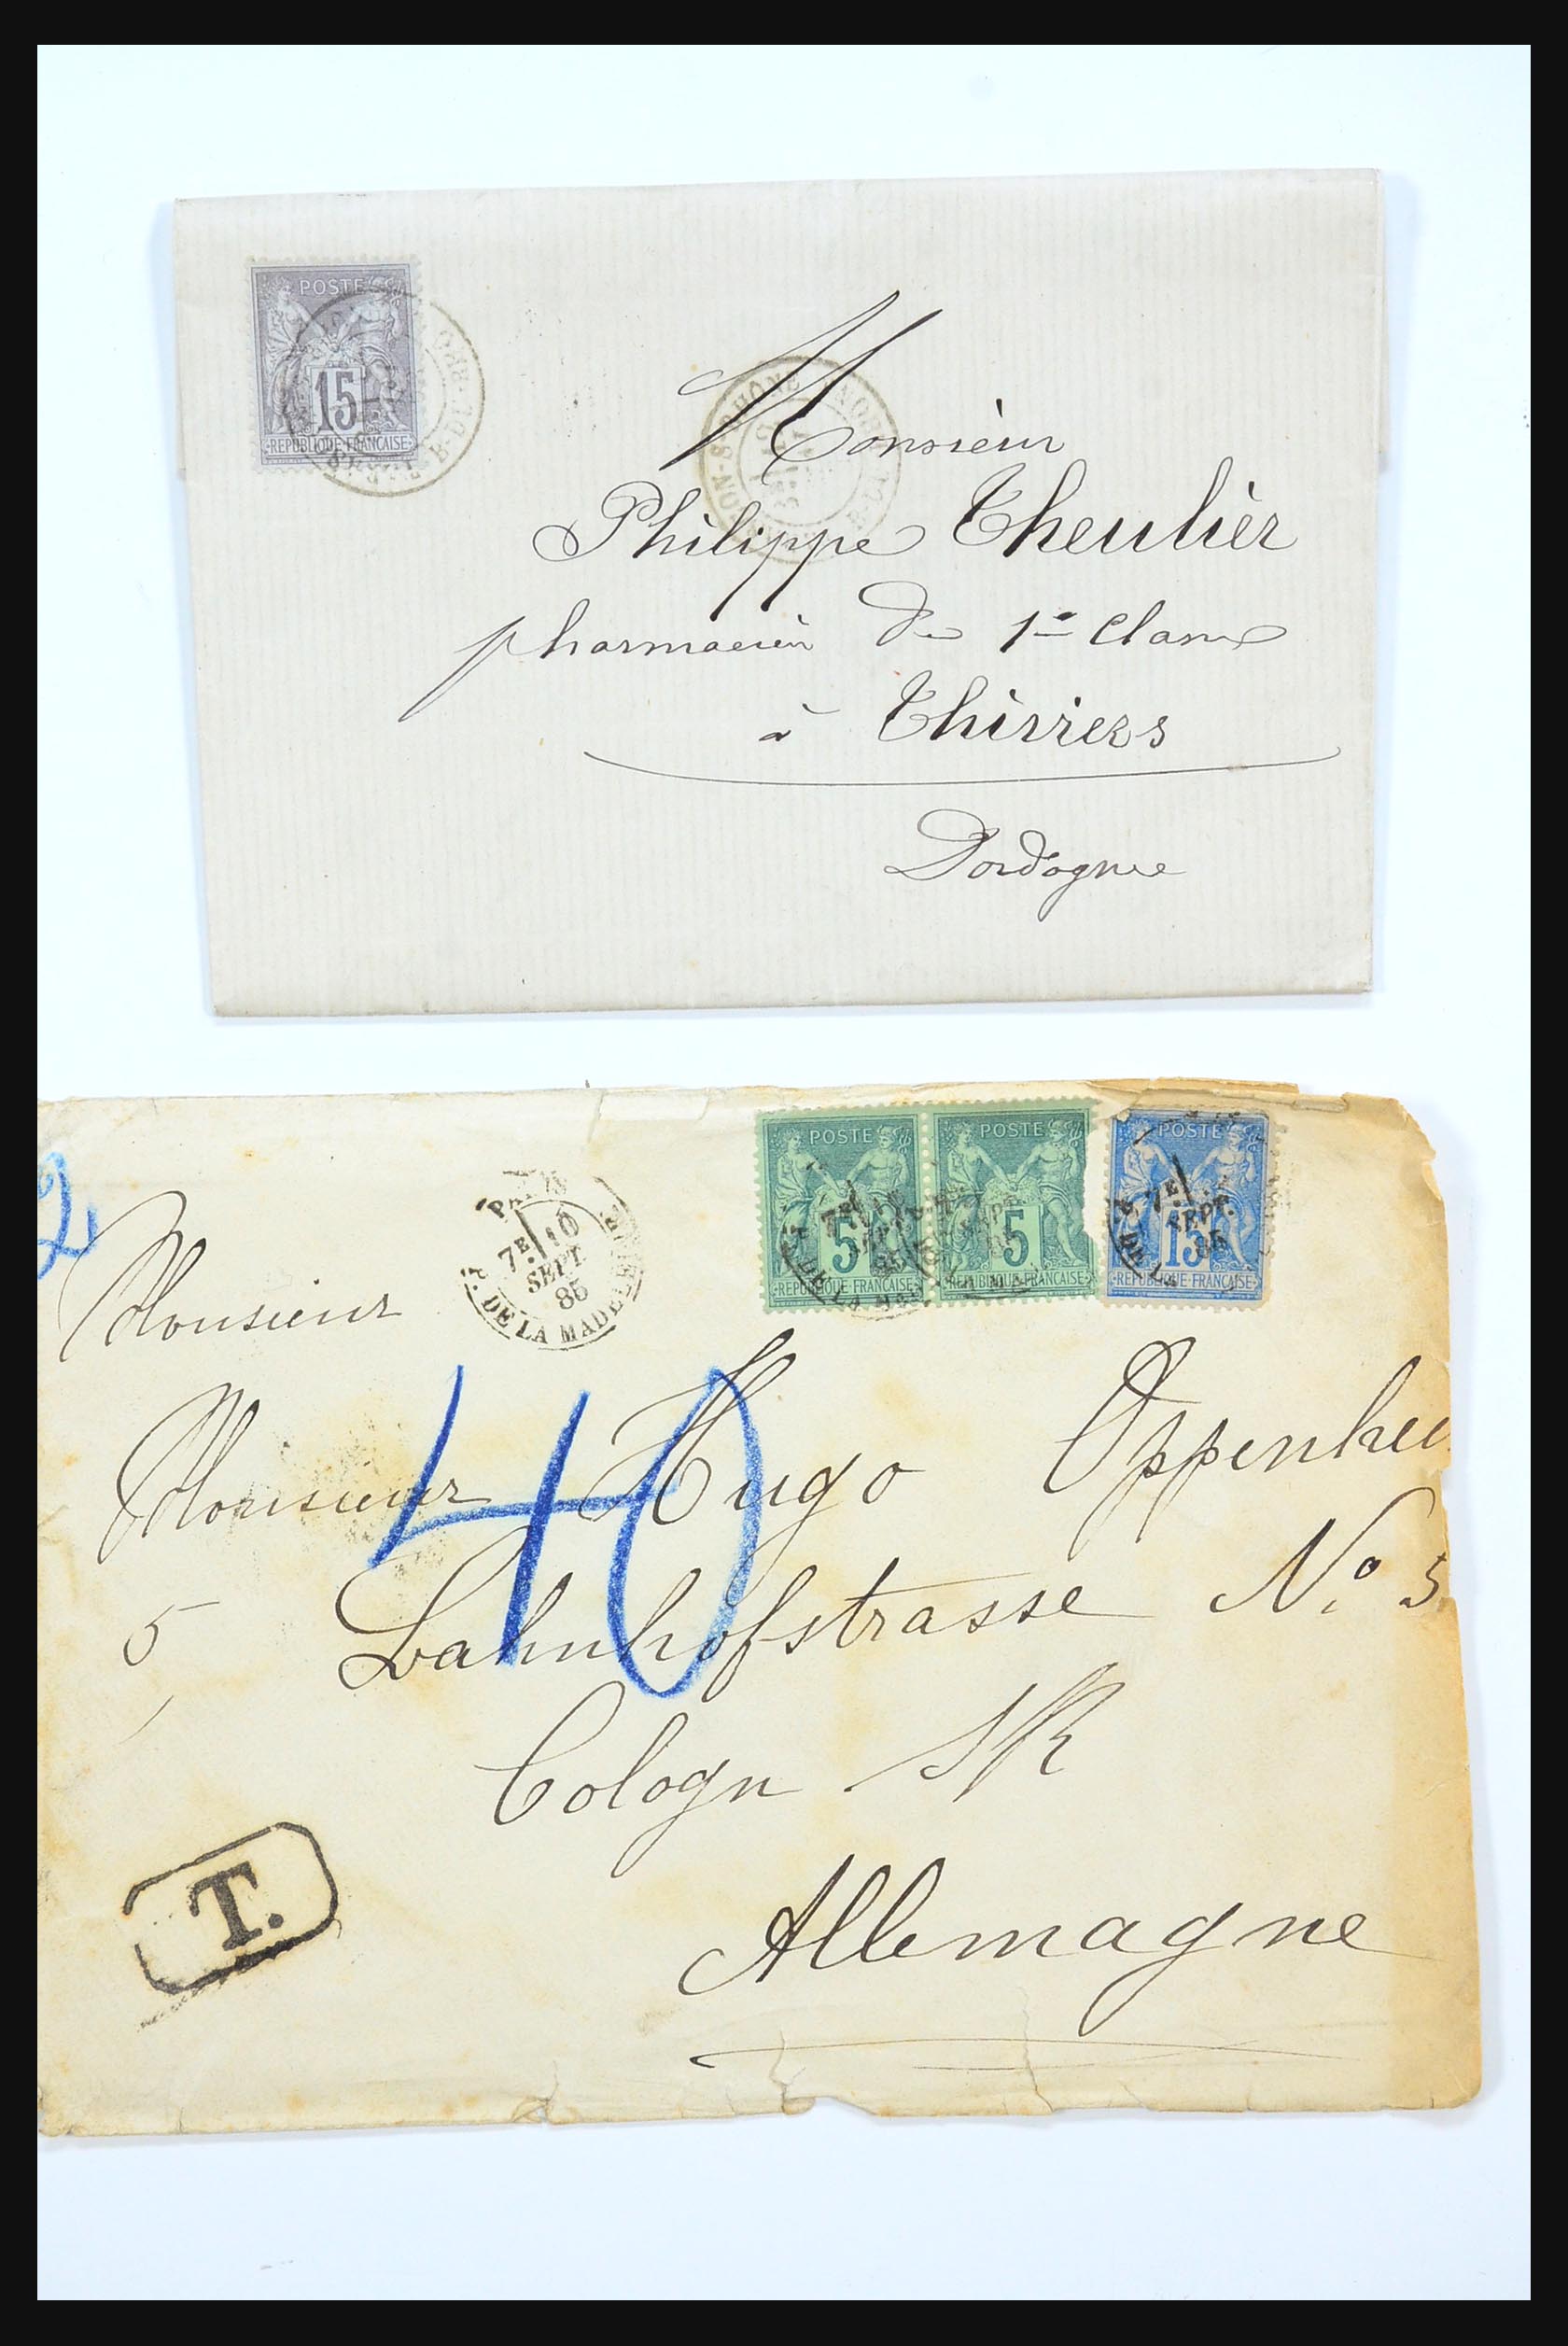 POSTE
15
REPUBLIQUE FRANCAISE
Monsieur
Philippe Theulier
pharmacien de 1re classe
à Thiviers
Dordogne
2
PARIS
7E 10
SEPT.
85
DE LA MADELEINE
POSTE POSTE POSTE
5 5 15
REPUBLIQUE FRANCAISE REPUBLIQUE FRANCAISE REPUBLIQUE FRANCAISE
7E
SEPT.
85
Monsieur
40
Monsieur Hugo Oppenhei
5 Bahnhofstrasse No 5
Cologn s/R
T.
Allemagne